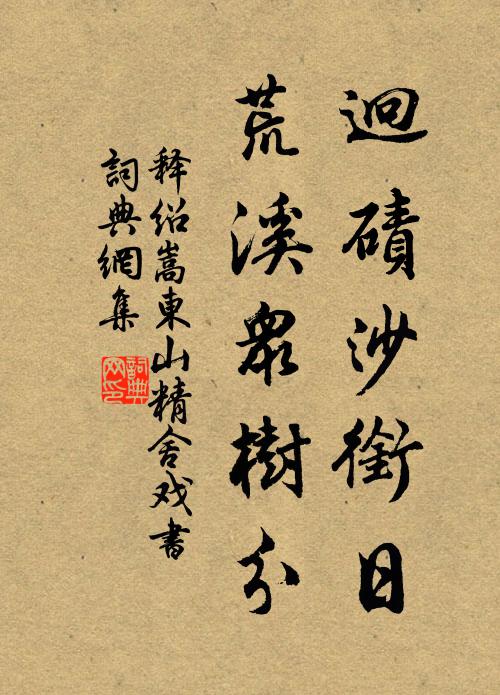 迥磧沙銜日
荒溪衆樹分
释绍嵩東山精舍戏書
詞典網集
詞典網印